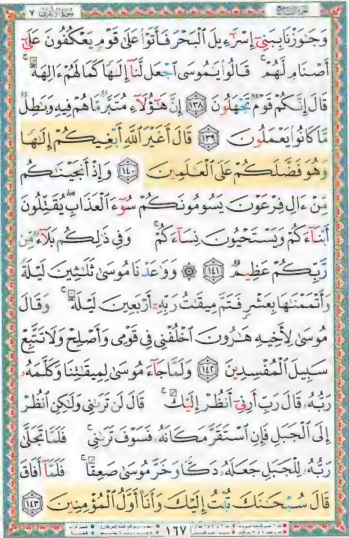 سورة الأعراف ٧
وَجَـٰوَزۡنَا بِبَنِيٓ إِسۡرَٰٓءِيلَ ٱلۡبَحۡرَ فَأَتَوۡاْ عَلَىٰ قَوۡمٖ يَعۡكُفُونَ عَلَىٰٓ
أَصۡنَامٖ لَّهُمۡۚ قَالُواْ يَـٰمُوسَى ٱجۡعَل لَّنَآ إِلَـٰهٗا كَمَا لَهُمۡ ءَالِهَةٞۚ
قَالَ إِنَّكُمۡ قَوۡمٞ تَجۡهَلُونَ ١٣٨ إِنَّ هَـٰٓؤُلَآءِ مُتَبَّرٞ مَّا هُمۡ فِيهِ وَبَـٰطِلٞ
مَّا كَانُواْ يَعۡمَلُونَ ١٣٩ قَالَ أَغَيۡرَ ٱللَّهِ أَبۡغِيكُمۡ إِلَـٰهٗا
وَهُوَ فَضَّلَكُمۡ عَلَى ٱلۡعَـٰلَمِينَ ١٤٠ وَإِذۡ أَنجَيۡنَـٰكُم
مِّنۡ ءَالِ فِرۡعَوۡنَ يَسُومُونَكُمۡ سُوٓءَ ٱلۡعَذَابِ يُقَتِّلُونَ
أَبۡنَآءَكُمۡ وَيَسۡتَحۡيُونَ نِسَآءَكُمۡۚ وَفِي ذَٰلِكُم بَلَآءٞ مِّن
رَّبِّكُمۡ عَظِيمٞ ١٤١ ۞ وَوَٰعَدۡنَا مُوسَىٰ ثَلَـٰثِينَ لَيۡلَةٗ
وَأَتۡمَمۡنَـٰهَا بِعَشۡرٖ فَتَمَّ مِيقَـٰتُ رَبِّهِۦٓ أَرۡبَعِينَ لَيۡلَةٗۚ وَقَالَ
مُوسَىٰ لِأَخِيهِ هَـٰرُونَ ٱخۡلُفۡنِي فِي قَوۡمِي وَأَصۡلِحۡ وَلَا تَتَّبِعۡ
سَبِيلَ ٱلۡمُفۡسِدِينَ ١٤٢ وَلَمَّا جَآءَ مُوسَىٰ لِمِيقَـٰتِنَا وَكَلَّمَهُۥ
رَبُّهُۥ قَالَ رَبِّ أَرِنِيٓ أَنظُرۡ إِلَيۡكَۚ قَالَ لَن تَرَىٰنِي وَلَـٰكِنِ ٱنظُرۡ
إِلَى ٱلۡجَبَلِ فَإِنِ ٱسۡتَقَرَّ مَكَانَهُۥ فَسَوۡفَ تَرَىٰنِيۚ فَلَمَّا تَجَلَّىٰ
رَبُّهُۥ لِلۡجَبَلِ جَعَلَهُۥ دَكّٗا وَخَرَّ مُوسَىٰ صَعِقٗاۚ فَلَمَّآ أَفَاقَ
قَالَ سُبۡحَـٰنَكَ تُبۡتُ إِلَيۡكَ وَأَنَا۠ أَوَّلُ ٱلۡمُؤۡمِنِينَ ١٤٣
١٦٧